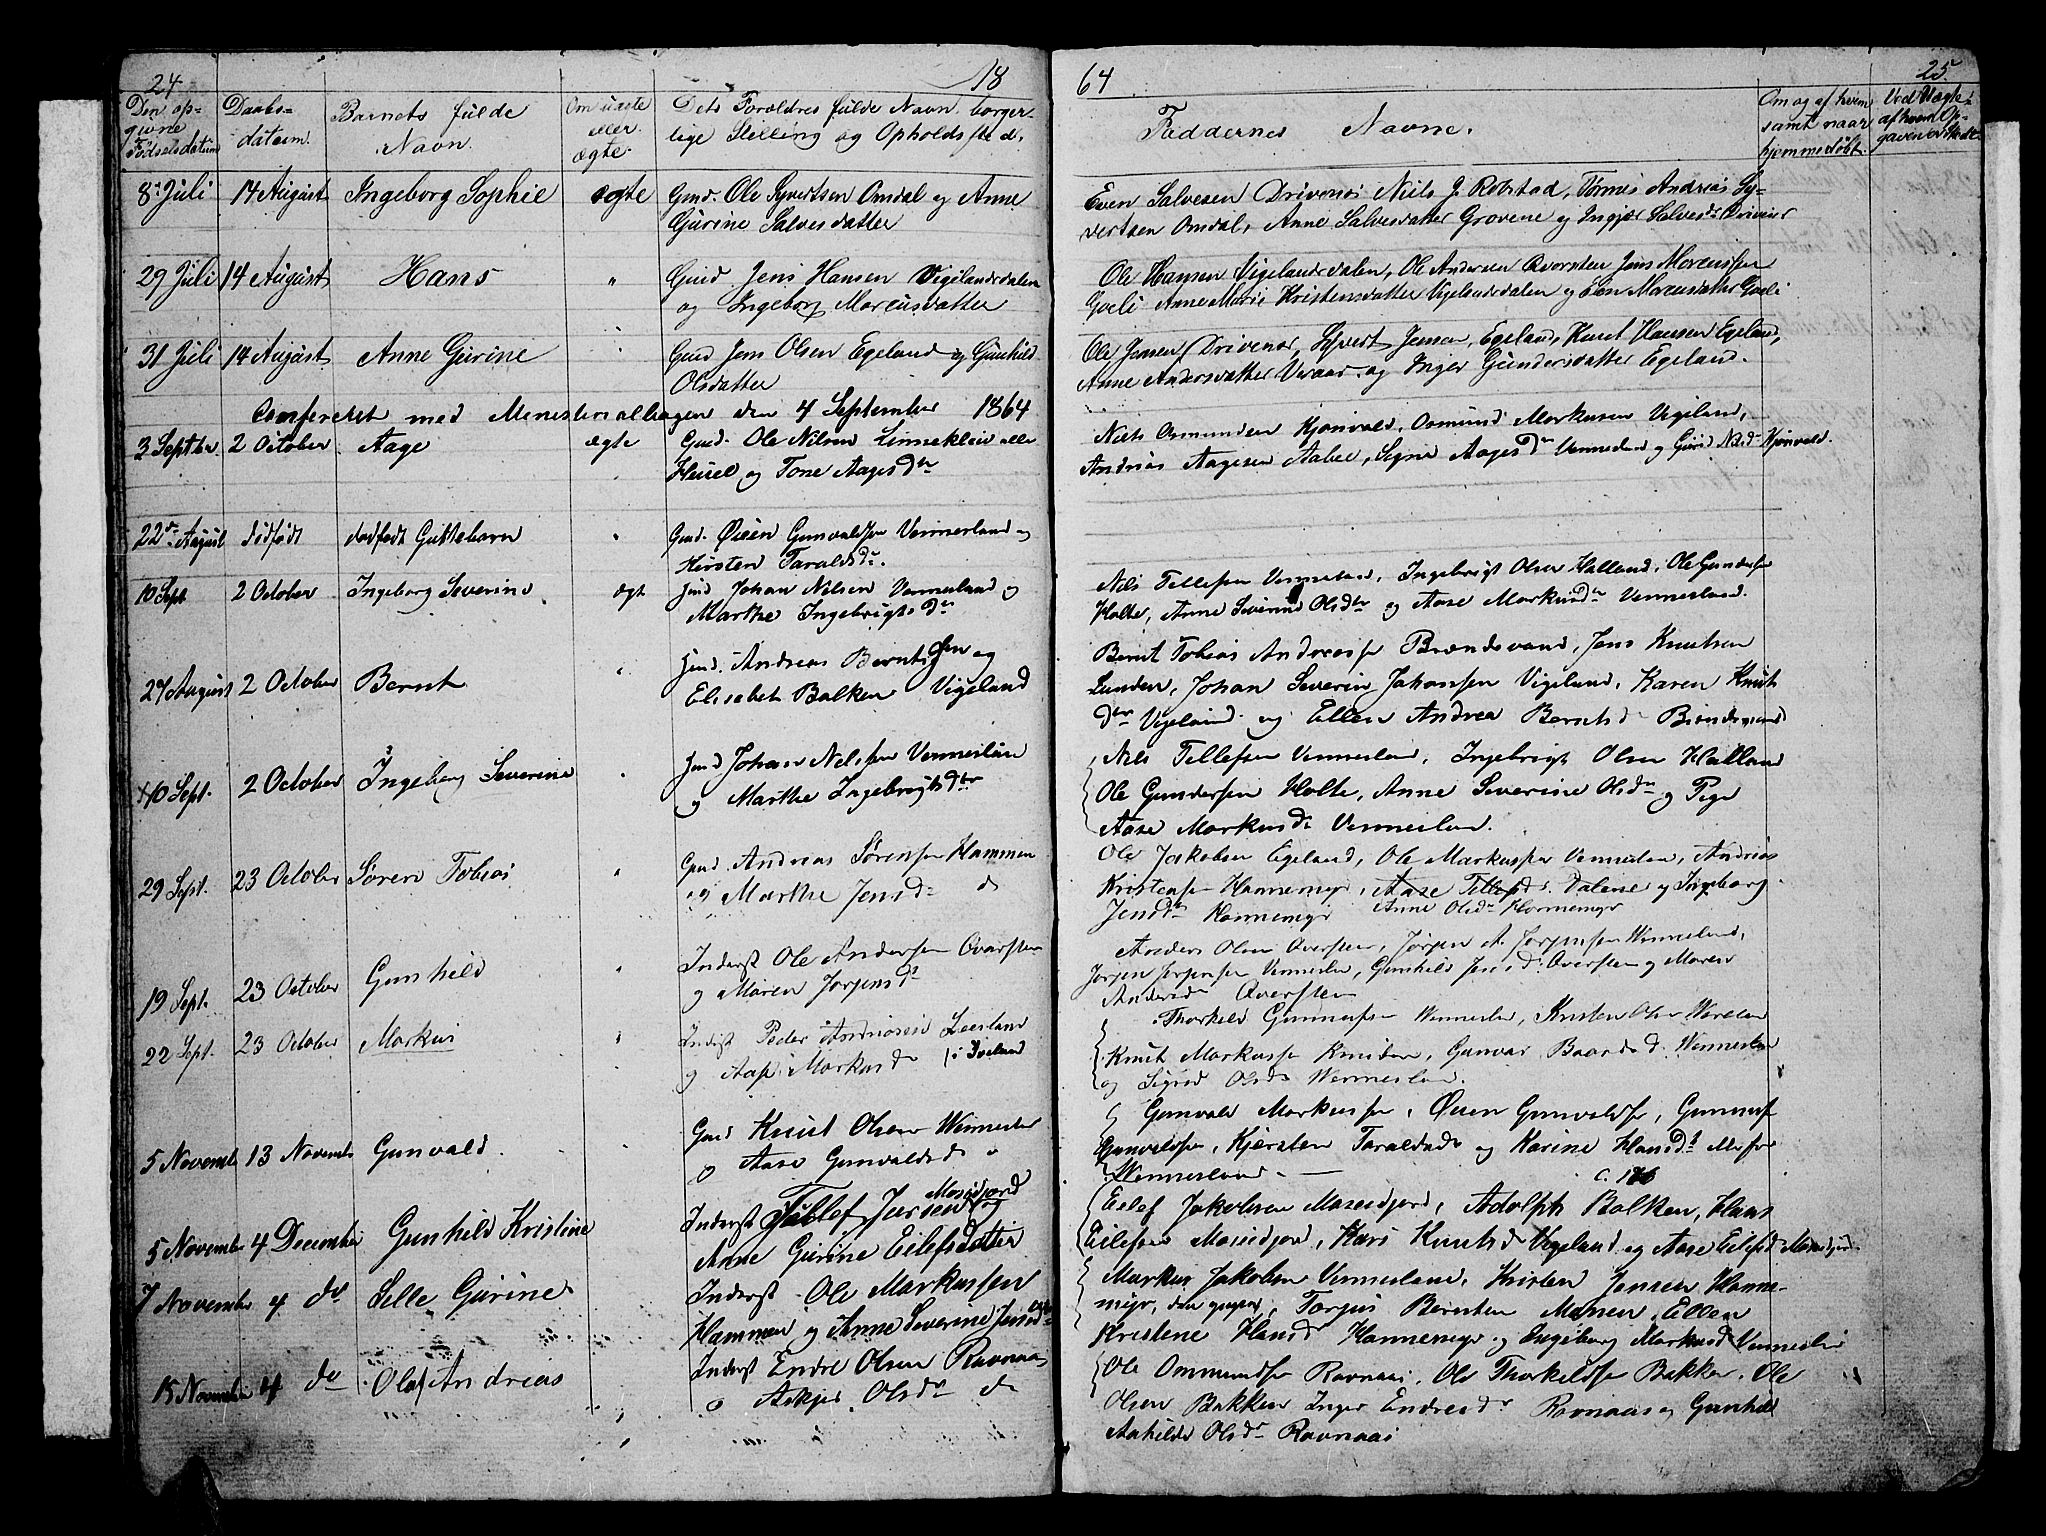 24
18
Den op-
givne
Fødselsdatum
Daabs-
datum.
Barnets fulde
Navn.
Om uægte
eller
ægte.
Dets Forældres fulde Navn, borger-
lige Stelling og Opholdssted.
8de Juli 14 August Ingeborg Sophie ægte Gmd. Ole Syvertsen Omdal og Anne
Gurine Salvesdatter
29 Juli 14 August Hans " Gmd. Jens Hansen Vigelandsdalen
og Ingeborg Marcusdatter
31 Juli 14 August Anne Gurine " Gmd Jens Olsen Egeland og Gunhild
Olsdatter
Confereret med Menesterialbogen den 4 September 1864
3 Septber 2 October Aage ægte Gmd. Ole Nilsen Linnekleiv eller
Heisel og Tone Aagesdtr
22de August dødfødt dødfødt Guttebarn " Gmd. Øien Gunvaldsen Vennesland og
Kirsten Taraldsdr.
10 Sept 2 October Ingeborg Severine ægt Gmd Johan Nilsen Vennesland og
Marthe Ingebrigtsdtr
27 August 2 October Bernt " Gmd. Andreas Berntsen og
Elisabet Balken Vigeland
10 Sept. 2 October Ingeborg Severine " Gmd Johan Nilsen Vennesland
og Marthe Ingebrigtsdtr
29 Sept. 23 October Søren Tobias " Gmd Andreas Sørensen Hammen
og Marthe Jensd. do
19 Sept. 23 October Gunhild " Inderst Ole Andersen Qvarsten
og Maren Jørgensdr
22 Sept. 23 October Markus " Inderst Peder Andreasen
og Aase Markusd. i Iveland
5 November 13 Novemb Gunvald. " Gmd Knut Olsen Wennesland
og Aase Gunvaldsd "
Moseidjord
5 November 4 December Gunhild Kristine Inderst Tellef Jensen og
Anne Gurine Eilefsdatter
7 November 4 do Selle Gurine Inderst Ole Markussen
Hammen og Anne Severine Jensd
15 November 4 do Olaf Andreas Inderst Endre Olsen Ravnaas
og Askjer Olsdr do
64
25.
Faddernes Navne.
Om og af hvem
samt naar
hjemmedøbt.
Ved Uægte:
af hvem Op-
gaven er skedt.
Even Salvesen Drivenes Niels J. Robstad, Tønnes Andreas Sy-
vertsen Omdal, Anne Salvesdatter Grovene og Ingjer Salvesdr Drivenes
Ole Hansen Vigelandsdalen, Ole Andersen Qvarsten Jens Marcussen
Anne Marie Kristensdatter Vigelandsdalen og Marcusdatter
Ole Jensen Drivenes, Syvert Jensen, Egeland, Knut Hansen Egeland,
Anne Andersdatter Veraas og Inger Gundersdatter Egeland.
Niels Osmundsen Kjonvald, Osmund Markusen Vigeland,
Andreas Aagesen Aabel, Signe Aagesdtr Vennesland og Guri Nilsd Kjonvald.
Nils Tellefsen Vennesland, Ingebrigt Olsen Halland, Ole Gundersen
Holte, Anne Severine Olsdtr og Aase Markusdtr Vennesland.
Bernt Tobias Andreassen Brændsvand, Jens Knutsen
Lunden, Johan Severin Johansen Vigeland, Karen Knuts
dtr Vigeland og Ellen Andrea Berntsd
Nils Tellefsen Vennesland, Ingebrigt Olsen Halland
Ole Gundersen Holte, Anne Severine Olsdr og Pige
Aase Markusd. Vennesland.
Ole Jakobsen Egeland, Ole Markussen Venneslan, Andreas
Kristensen Hannemyr, Aase Tellefsd. Dalene og Ingeborg
Jensdtr Hannemyr Anne Olsdr Hannemyr
Anders Olsen Qversten, Jørgen A. Jørgensen Wennesland,
Jørgen Jørgensen Venneslan, Gunhild Jensd. Qversten og Maren
Andersdr Qversten
Thorkild Gunnarsen Wenneslan, Kristen Olsen
Knut Markussen Gunvar Baardsd. Wenneslan
og Sigrid Olsdr Wenneslan.
Gunvald Markussen, Øien Gunvaldsen, Gunnuf
Gunvaldsen, Kjersten Taraldsdr og Karine Hansdr
Wennesland
Eilef Jakobsen Moseidjord, Adolph Balken, Hans
Eilefsen Moseidjord, Kari Knutsd Vigeland og Aase Eilefsd Moseidjord.
Markus Jakobsen Vennesland, Kristen Jensen Hanne-
myr, den Torjus Berntsen Ellen
Kristene Hansd Hannemyr og Ingeborg Markusd Venneslan
Ole Ommundsen Ravnaas, Ole Thorkildsen Bakken, Ole
Olsen Bakken Inger Endresdr Ravnaas og Gunhild
Olsdr Ravnaas